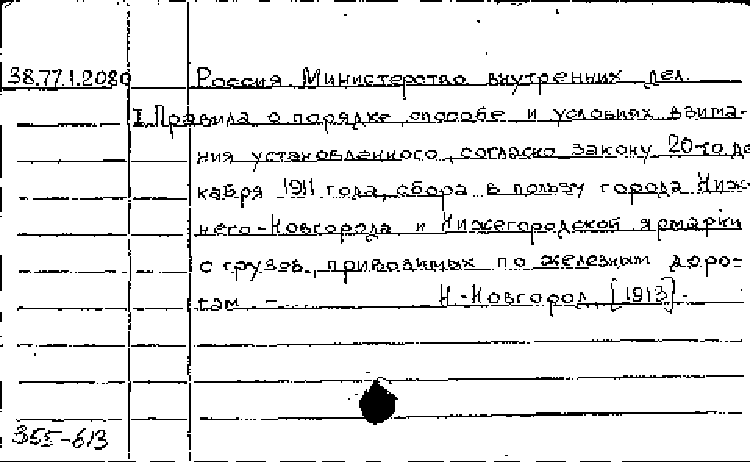 38.77.1.2080 Россия. Министерство внутренних дел.
I. Правила о порядке, способе и условиях взима-
ния установленного, согласно закону 20-го де
кабря 1911 года, сбора в пользу города Ниж-
него-Новгорода и Нижегородской ярмарки
с грузов, привозимых по железным доро-
гам. – Н.-Новгород, [1913].
355-613